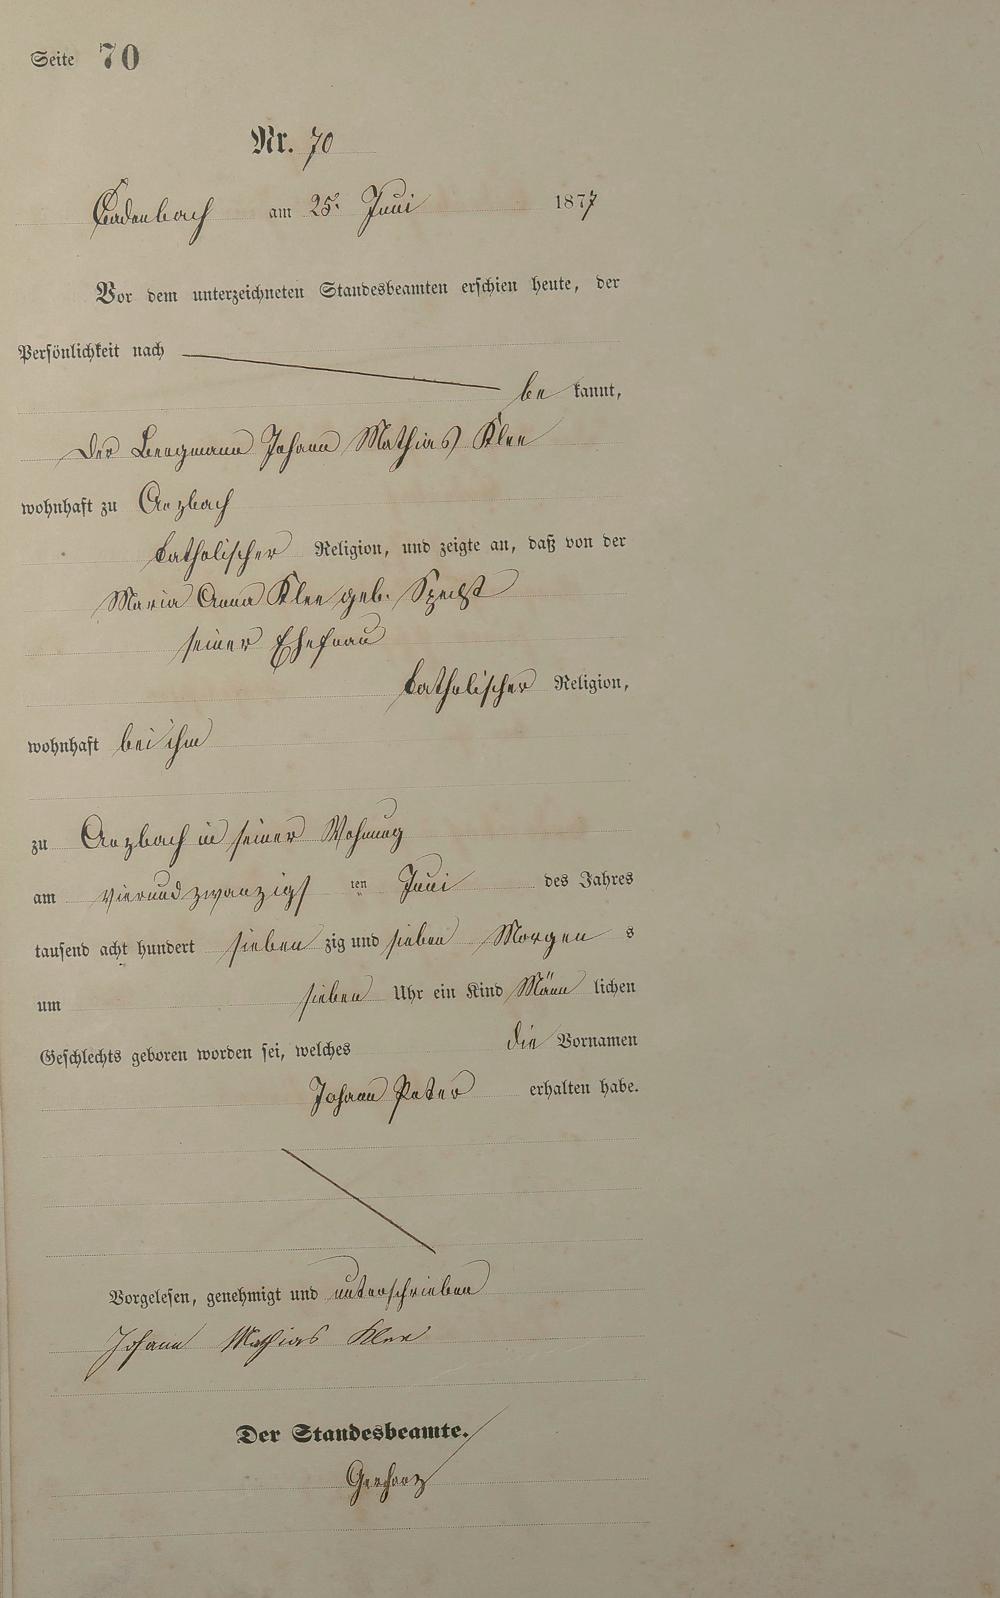 Seite 70
Nr. 70
Cadenbach am 25. Juni 1877
Vor dem unterzeichneten Standesbeamten erschien heute, der
Persönlichkeit nach
be kannt,
der Bergmann Johann Mathias Klee
wohnhaft zu Arzbach
katholischer Religion, und zeigte an, daß von der
Maria Anna Klee geb. Specht
seiner Ehefrau
katholischer Religion,
wohnhaft bei ihm
zu Arzbach in seiner Wohnung
am vierundzwanzigs ten Juni des Jahres
tausend acht hundert sieben zig und sieben Morgen s
um sieben Uhr ein Kind Männ lichen
Geschlechts geboren worden sei, welches die Vornamen
Johann Peter erhalten habe.
Vorgelesen, genehmigt und unterschrieben
Johann Mathias Klee
Der Standesbeamte.
Gerharz